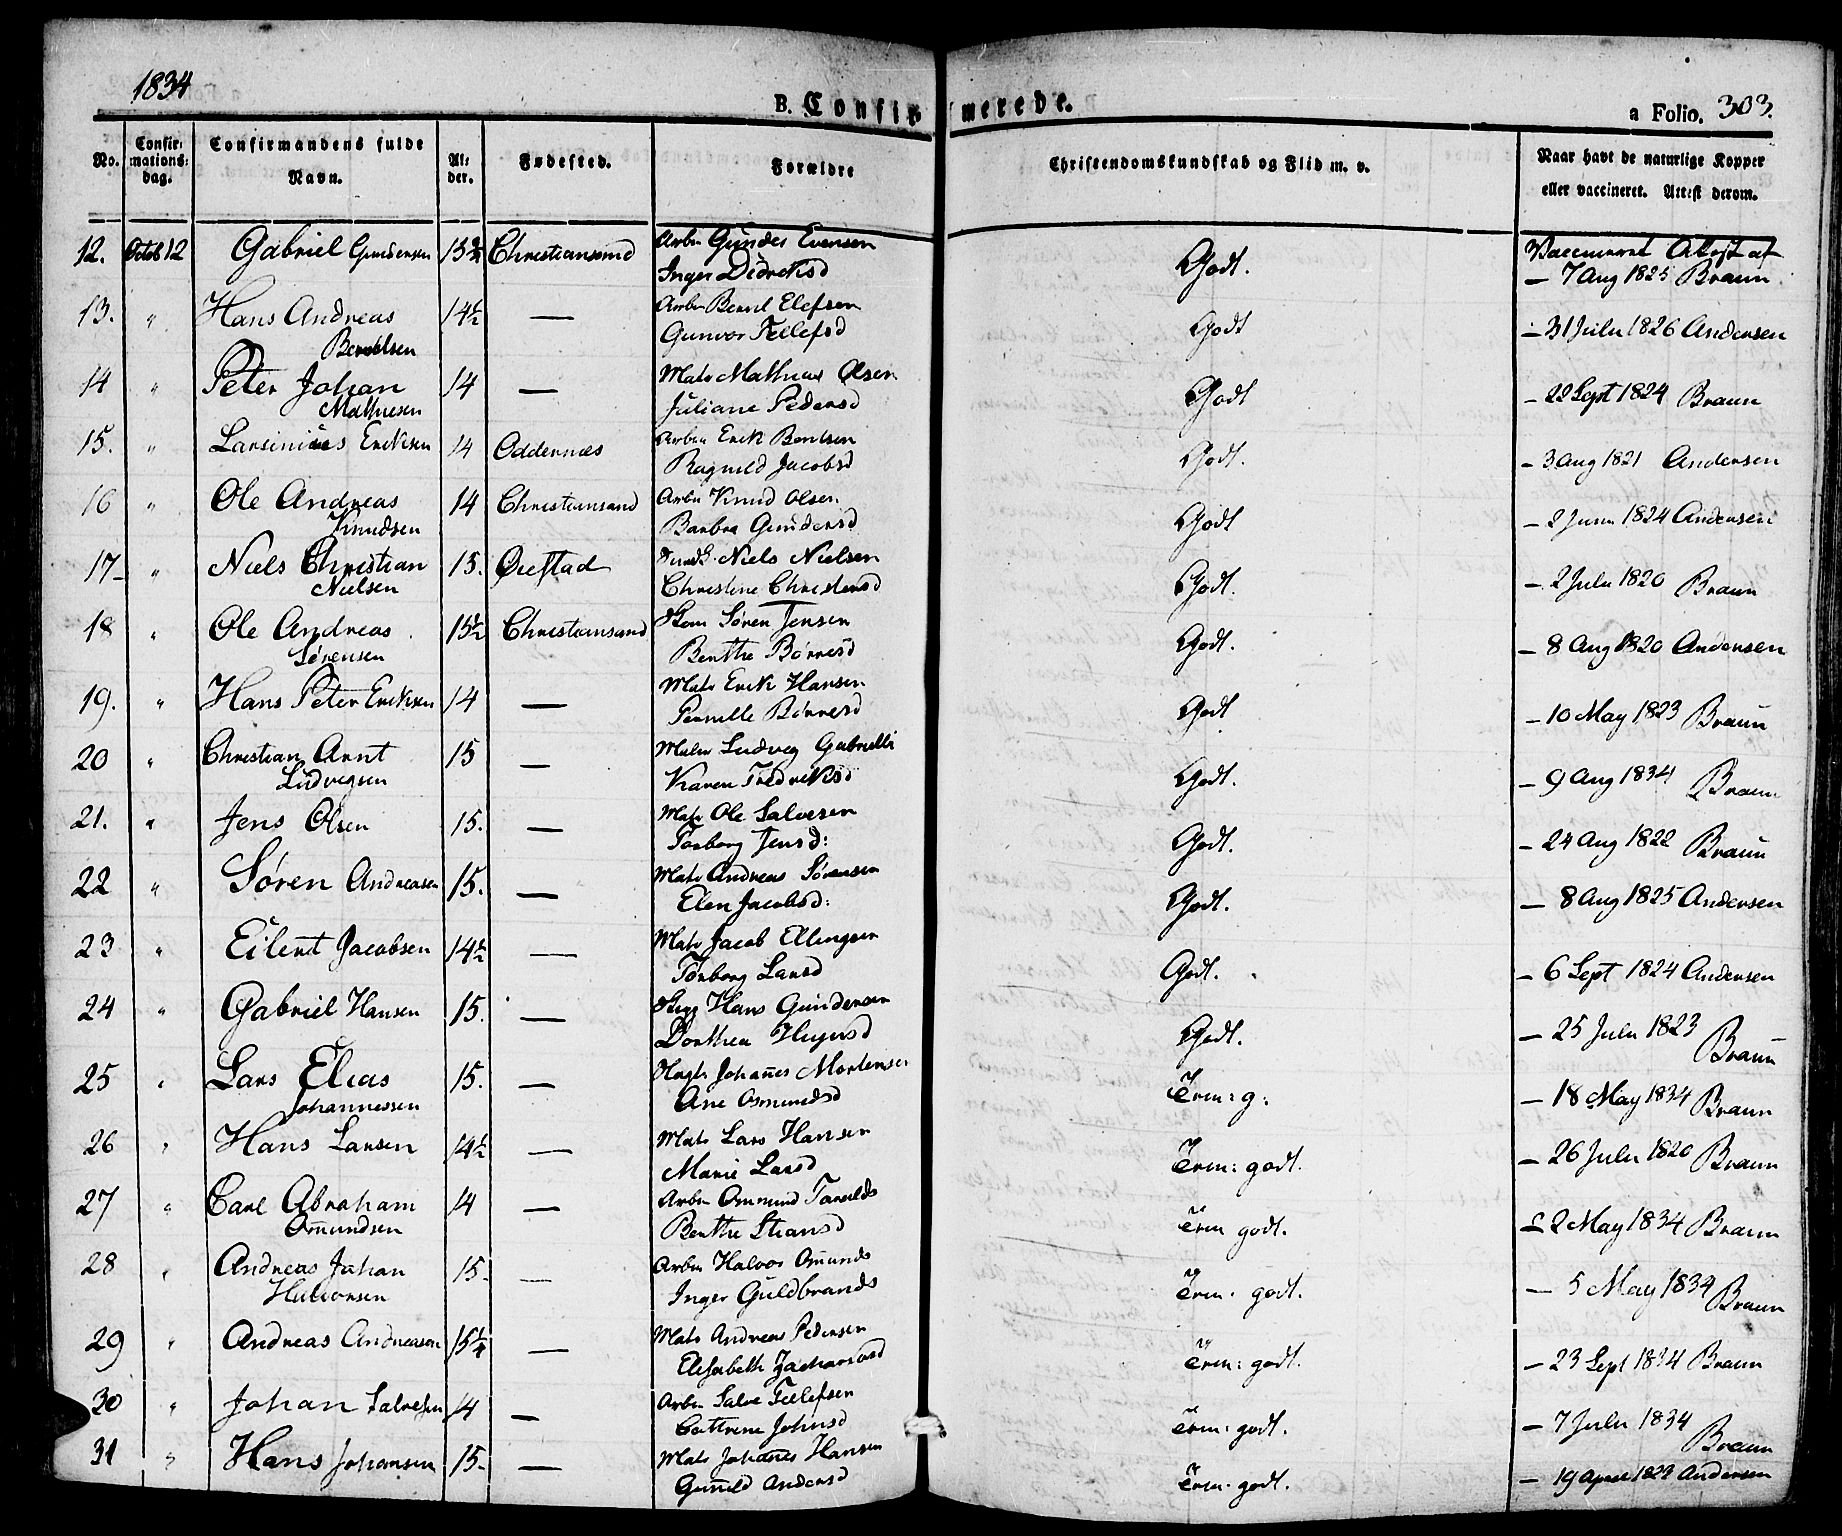 1834
B. Confirmerede.
a Folio. 303.
No. Confirmationsdag. Confirmandens fulde Navn. Alder. Fødested. Forældre Christendomskundskab og Flid m. v. Naar havt de naturlige Kopper eller vaccineret. Attest derom.
12. Octob 12 Gabriel Gundersen 15 Christiansand Arbr Gundes Evensen Godt. Vaccineret Attest af
Inger Didriksd — 7 Aug 1825 Braun
13. " Hans Andreas 14½ — Arbr Berul Elefsen Godt — 31 Julu 1826 Andersen
Berulsen Gunvor Tellefsd
14 " Peter Johan 14 — Matr Mathias Olsen Godt — 22 Sept 1824 Braun
Mathiesen Juliane Pedersd
15. " Larsinius Ericksen 14 Oddernæs Arbr Erik Bentsen Godt. — 3 Aug 1821 Andersen
Ragnild Jacobsd
16 " Ole Andreas 14 Christiansand Arbr Knud Olsen Godt — 2 Juni 1824 Andersen
Knudsen Barbra Gundersd
17 " Niels Christian 15. Øiestad Niels Nielsen Godt. — 2 Julu 1820 Braun
Nielsen Christine Christensd
18 " Ole Andreas 15½ Christiansand Søren Jensen Godt. — 8 Aug 1820 Andersen
Sørensen Berthe Børresd
19. " Hans Peter Ericksen 14 — Matr Erik Hansen Godt — 10 May 1823 Braun
Pernille Børresd
20 " Christian Arnt 15 — Maler Ludvig Gabrielli Godt. — 9 Aug 1834 Braun
Ludvigsen Karen Fredriksd
21. " Jens Olsen 15. — Matr Ole Salvesen Godt. — 24 Aug 1822 Braun
Torborg Jensd:
22 " Søren Andreasen 15. — Matr Andreas Sørensen Godt. — 8 Aug 1825 Andersen
Elen Jacobsd:
23 " Eilert Jacobsen 14½ — Matr Jacob Ellingsen Godt. — 6 Sept 1824 Andersen
Torborg Larsd
24 " Gabriel Hansen 15. — Hans Gundersen Godt. — 25 Julu 1823
Dorthea Braun
25 " Lars Elias 15. — Johanes Mortensen Tem: g: — 18 May 1834 Braun
Johannessen Ane Osmundsd
26 " Hans Larsen 14½ — Matr Lars Hansen Tem: godt. — 26 Julu 1820 Braun
Marie Larsd
27 " Carl Abraham 14 — Arbr Omund Tarelds Tem godt. — 2 May 1834 Braun
Omundsen Berthe
28 " Andreas Johan 15. — Arbr Halvor Omunds Tem. godt. — 5 May 1834
Halvorsen Inger Guldbrands Braun
29 " Andreas Andreasen 15¼ — Matr Andreas Pedersen Tem: godt. — 23 Sept 1834 Braun
Elisabeth
30 " Johan Salvesen 14 — Arbr Salve Tellefsen Tem: godt. — 7 Julu 1834
Cathrine Johnsd Braun
31 " Hans Johansen 15. — Matr Johanes Hansen Tem. godt. — 19 April Andersen
Gunild Andersd